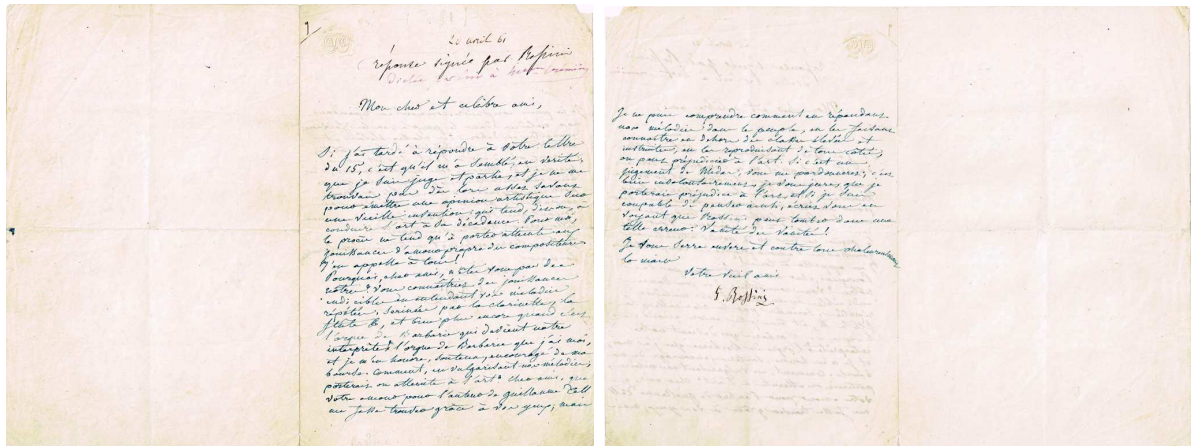 20 avril 61
réponse signée par Rossini
dictée
Mon cher et célèbre ami,
Si j'ai tardé à répondre à votre lettre
du 15, c'est qu'il m'a semblé, en vérité,
que je suis juge et partie, et je ne me
trouvais pas dès lors assez savant
pour émettre une opinion artistique sur
une vieille invention qui tend, dit-on, à
conduire l'art à sa décadence. Pour moi,
le procès ne tend qu'à porter atteinte aux
jouissances d'amour propre des compositeurs
J'en appelle à tous!
Pourquoi, cher ami, n'êtes vous pas des
nôtres? Vous connaîtriez des jouissances
indicible en entendant vos mélodies
répétées, serinées par la clarinette, la
flûte &, et bien plus encore quand c'est
l'orgue de Barbarie qui devient notre
interprète! l'orgue de Barbarie que j'ai moi,
et je m'en honore, soutenu, encouragé de ma
bourse. Comment, en vulgarisant nos mélodies,
porterait on atteinte à l'art? cher ami, que
votre amour pour l'auteur de guillaume Tell
me fasse trouver grâce à vos yeux, mais
Je ne puis comprendre comment en répandant
nos mélodies dans le peuple, en les faisant
connaître en dehors des classes élevées et
instruites, en les reproduisant de tous côtés,
on peut préjudicier à l'art. Si c'est un
jugement de Midas, vous me pardonnerez; c'est
bien involontairement, je vous jure que je
porterais préjudice à l'art, et si je suis
coupable de penser ainsi, écriez vous en
voyant que Rossini peut tomber dans une
telle erreur: Vanité des Vanités!
Je vous serre encore et contre tous
la main
Votre vieil ami
G. Rossini